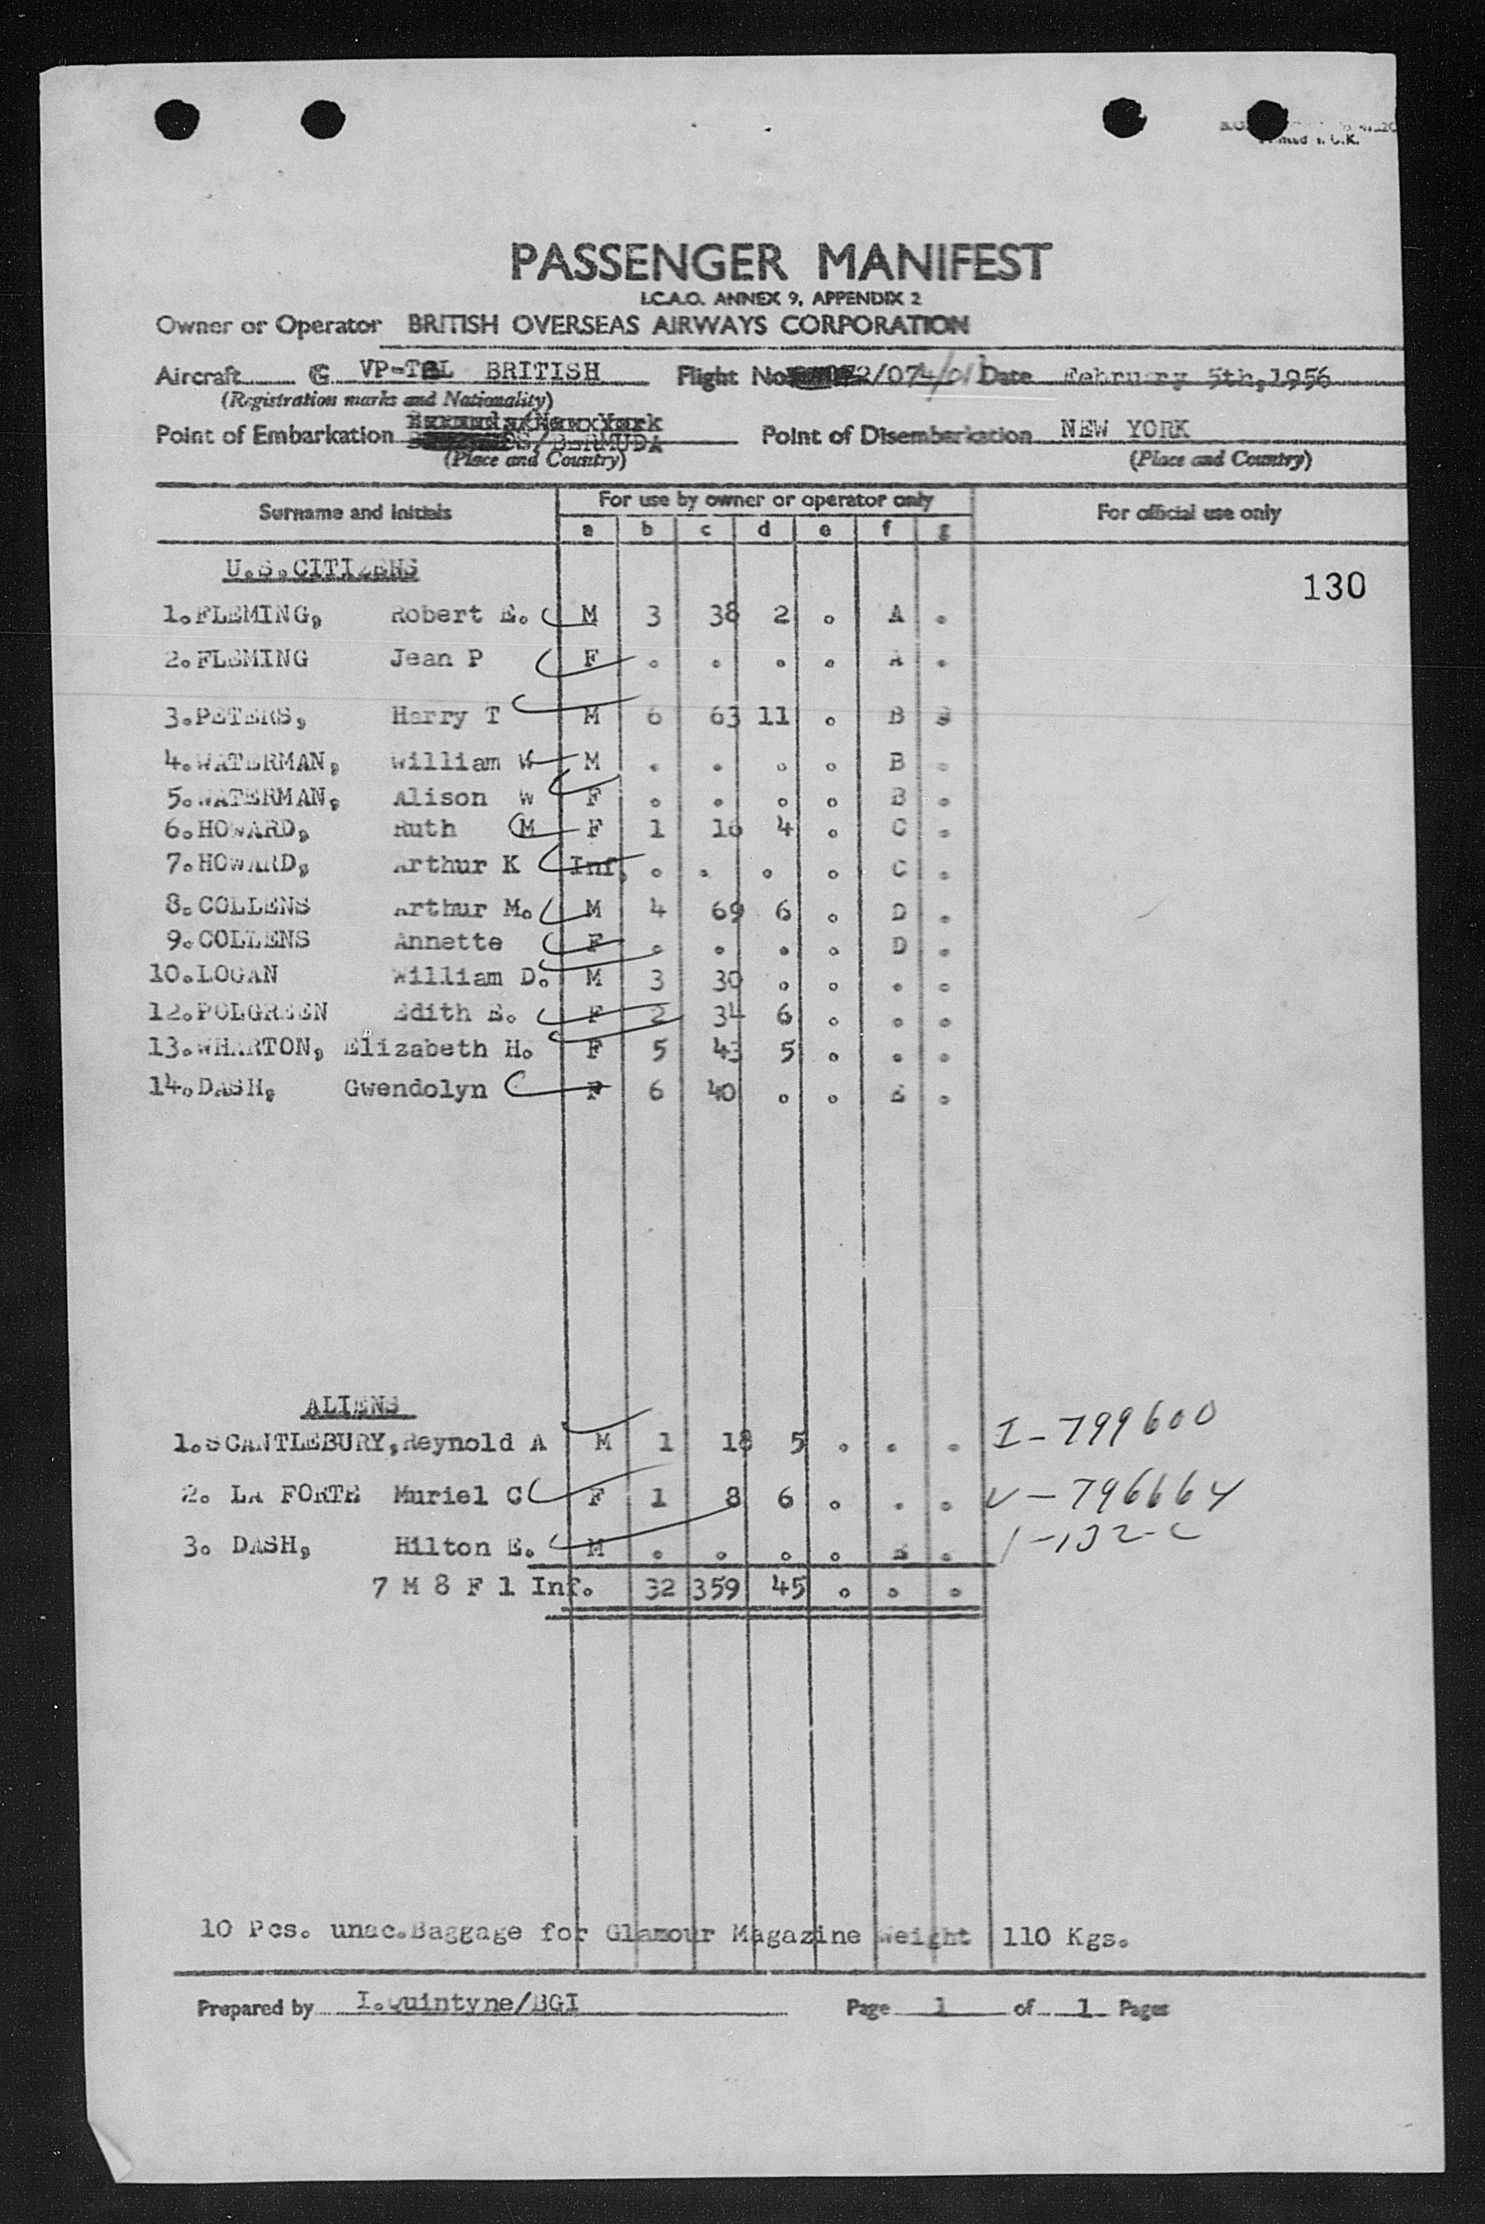 Printed U.K.
PASSENGER MANIFEST
I.C.A.O. ANNEX 9, APPENDIX 2
Owner or Operator BRITISH OVERSEAS AIRWAYS CORPORATION
Aircraft G VP-TBL BRITISH Flight No 2/074/01 Date February 5th,1956
(Registration marks and Nationality)
Point of Embarkation /BERMUDA Point of Disembarkation NEW YORK
(Place and Country) (Place and Country)
Surname and initials For use by owner or operator only For official use only
a b c d e f g
U.S.CITIZENS
130
1.FLEMING, Robert E. M 3 38 2 . A .
2.FLEMING Jean P F . . . . A .
3.PETERS, Harry T M 6 63 11 . B B
4.WATERMAN, William W M . . . . B .
5.WATERMAN, Alison W F . . . . B .
6.HOWARD, Ruth M F 1 16 4 . C .
7.HOWARD, Arthur K Inf. . . . . C .
8.COLLENS Arthur M. M 4 69 6 . D .
9.COLLENS Annette F . . . . D .
10.LOGAN William D. M 3 30 . . . .
12.POLGREEN Edith E. F 2 34 6 . . .
13.WHARTON, Elizabeth H. F 5 43 5 . . .
14.DASH, Gwendolyn F 6 40 . . E .
ALIENS
1.SCANTLEBURY,Reynold A M 1 18 5 . . . I-799600
2. LA FORTE Muriel C F 1 8 6 . . . V-796664
3. DASH, Hilton E. M . . . . E . 1-132-C
7 M 8 F 1 Inf. 32 359 45 . . .
10 Pcs. unac.Baggage for Glamour Magazine Weight 110 Kgs.
Prepared by I.Quintyne/BGI Page 1 of 1 Pages